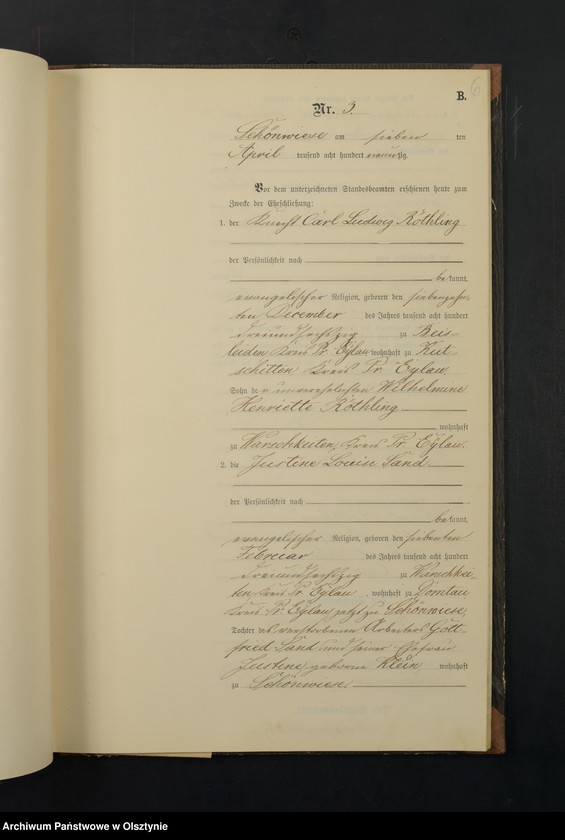 B. 6
Nr. 3.
Schönwiese am sieben ten
April tausend acht hundert neunzig.
Vor dem unterzeichneten Standesbeamten erschienen heute zum
Zwecke der Eheschließung:
1. der Knecht Carl Ludwig Röthling
der Persönlichkeit nach
be kannt,
evangelischer Religion, geboren den siebenzehn-
ten December des Jahres tausend acht hundert
dreiundsechszig zu Beis-
leiden, Kreis Pr. Eylau, wohnhaft zu Kut-
schitten Kreis Pr. Eylau,
Sohn der unverehelichten Wilhelmine
Henriette Röthling
wohnhaft
zu Warschkeiten, Kreis Pr. Eylau.
2. die Justine Louise Sand
der Persönlichkeit nach
be kannt,
evangelischer Religion, geboren den siebenten
Februar des Jahres tausend acht hundert
dreiundsechszig zu Warschkei-
ten, Kreis Pr. Eylau, wohnhaft zu Domtau
Kreis Pr. Eylau, jetzt zu Schönwiese,
Tochter des verstorbenen Arbeiters Gott-
fried Sand und seiner Ehefrau
Justine, geborne Klein wohnhaft
zu Schönwiese.
Archiwum Państwowe w Olsztynie